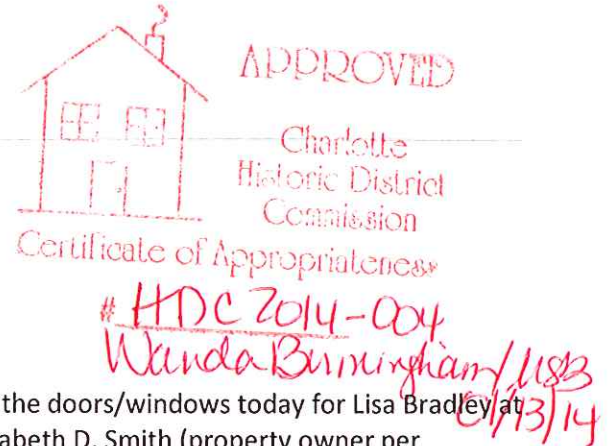 APPROVED
Charlotte
Historic District
Commission
Certificate of Appropriateness
# HDC 2014-004
Wanda Birmingham/
01/13/14
the doors/windows today for Lisa Bradley at
abeth D. Smith (property owner per